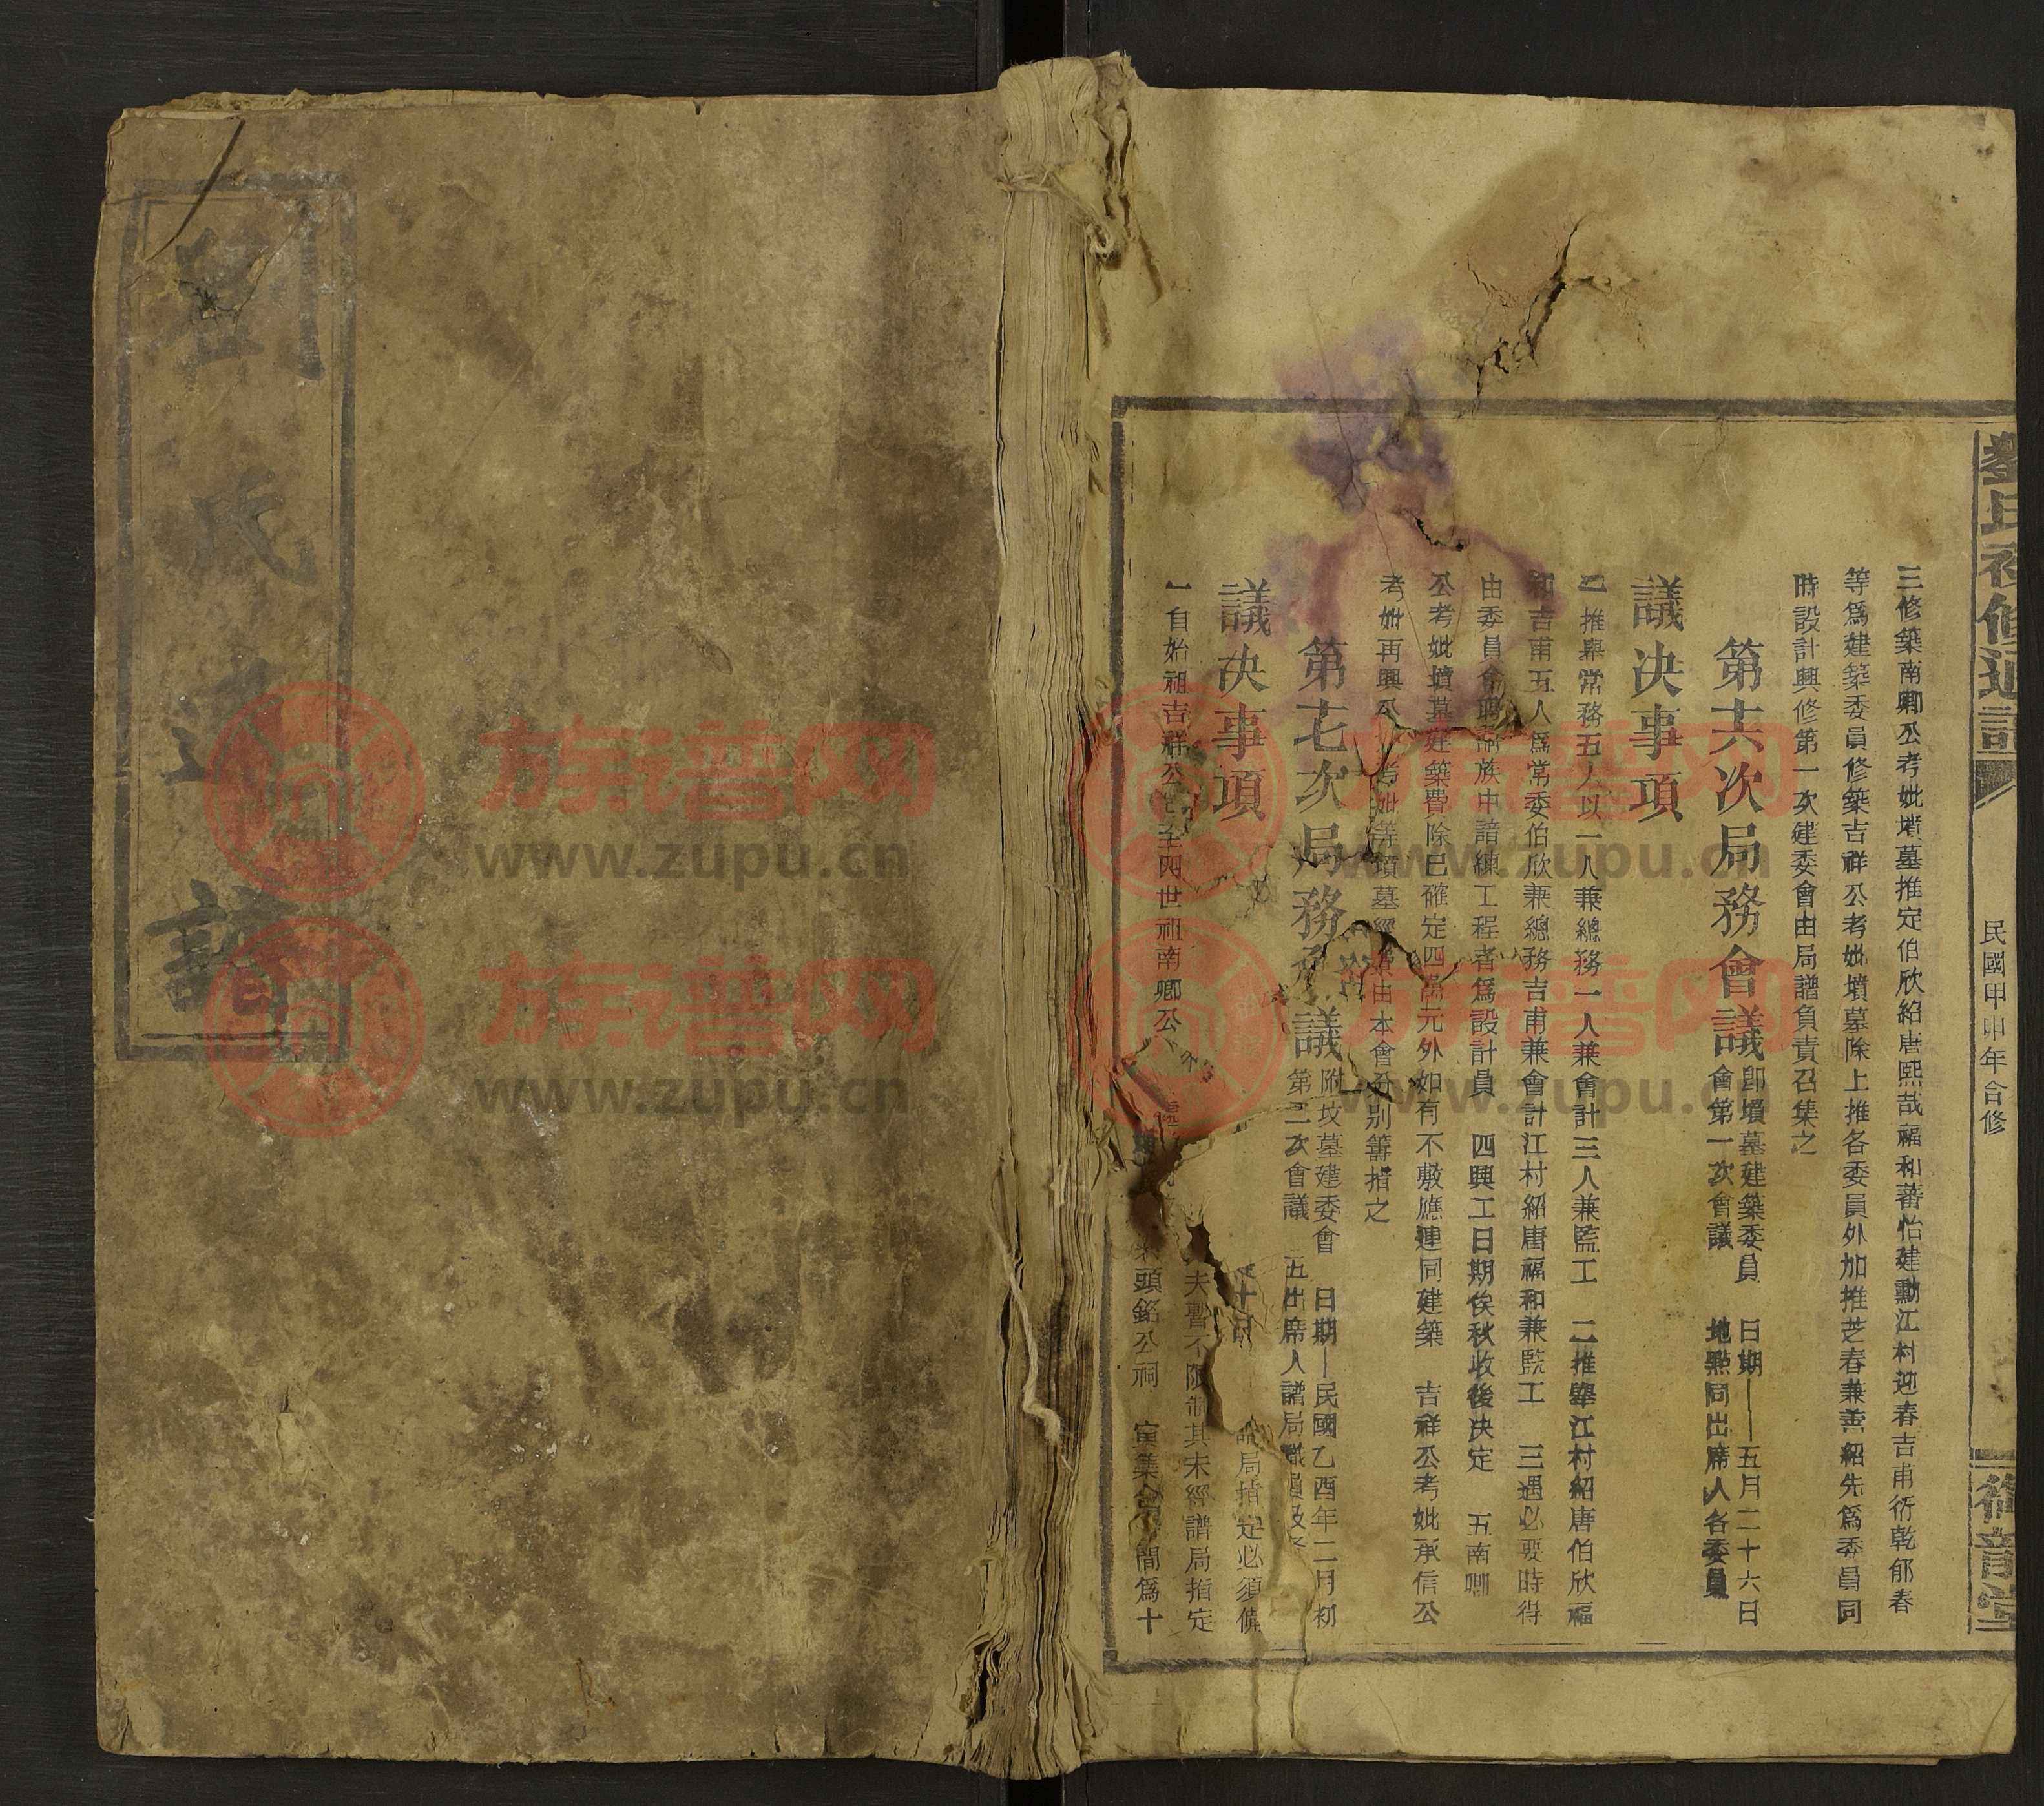 劉氏通譜
民國甲申年合修
三修築南卿公考妣墳墓推定伯欣紹唐熙哉福和蕃怡建勳江村迎春吉甫衍乾郁春
等爲建築委員修築吉祥公考妣墳墓除上推各委員外加推芝春兼善紹先爲委員同
時設計興修第一次建委會由局譜負責召集之
第六次局務會議卽墳墓建築委員會第一次會議 日期—五月二十六日 地點同出席人各委員
議決事項
一推舉常務五人以一人兼總務一人兼會計三人兼監工 二推舉江村紹唐伯欣福
和吉甫五人爲常委伯欣兼總務吉甫兼會計江村紹唐福和兼監工 三遇必要時得
由委員會聘劉族中諳練工程者爲設計員 四興工日期俟秋收後決定 五南卿
公考妣墳墓建築費除已確定四萬元外如有不敷應連同建築 吉祥公考妣承信公
考妣再興公考妣等墳墓經費由本會分別籌措之
第七次局務會議附坟墓建委會第二次會議 日期—民國乙酉年二月初五出席人譜局職員及
議決事項
一自始祖吉祥公至四世祖南卿公
局指定必須備
夫暫不限制其未經譜局指定
頭銘公祠 寅集合
族谱网
www.zupu.cn
族谱网
www.zupu.cn
族谱网
www.zupu.cn
族谱网
www.zupu.cn